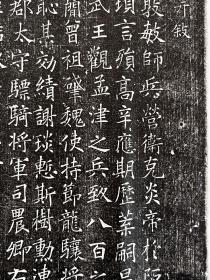 并叙
殷敏師兵營衛克炎帝於阪
頊言殯高辛應期歷葉嗣昌
武王觀孟津之兵致八百之
蘭曾祖肇魏使持節龍驤將
恥其功績謝琰慙斯樹勳連
郡太守驃騎將軍司農卿右